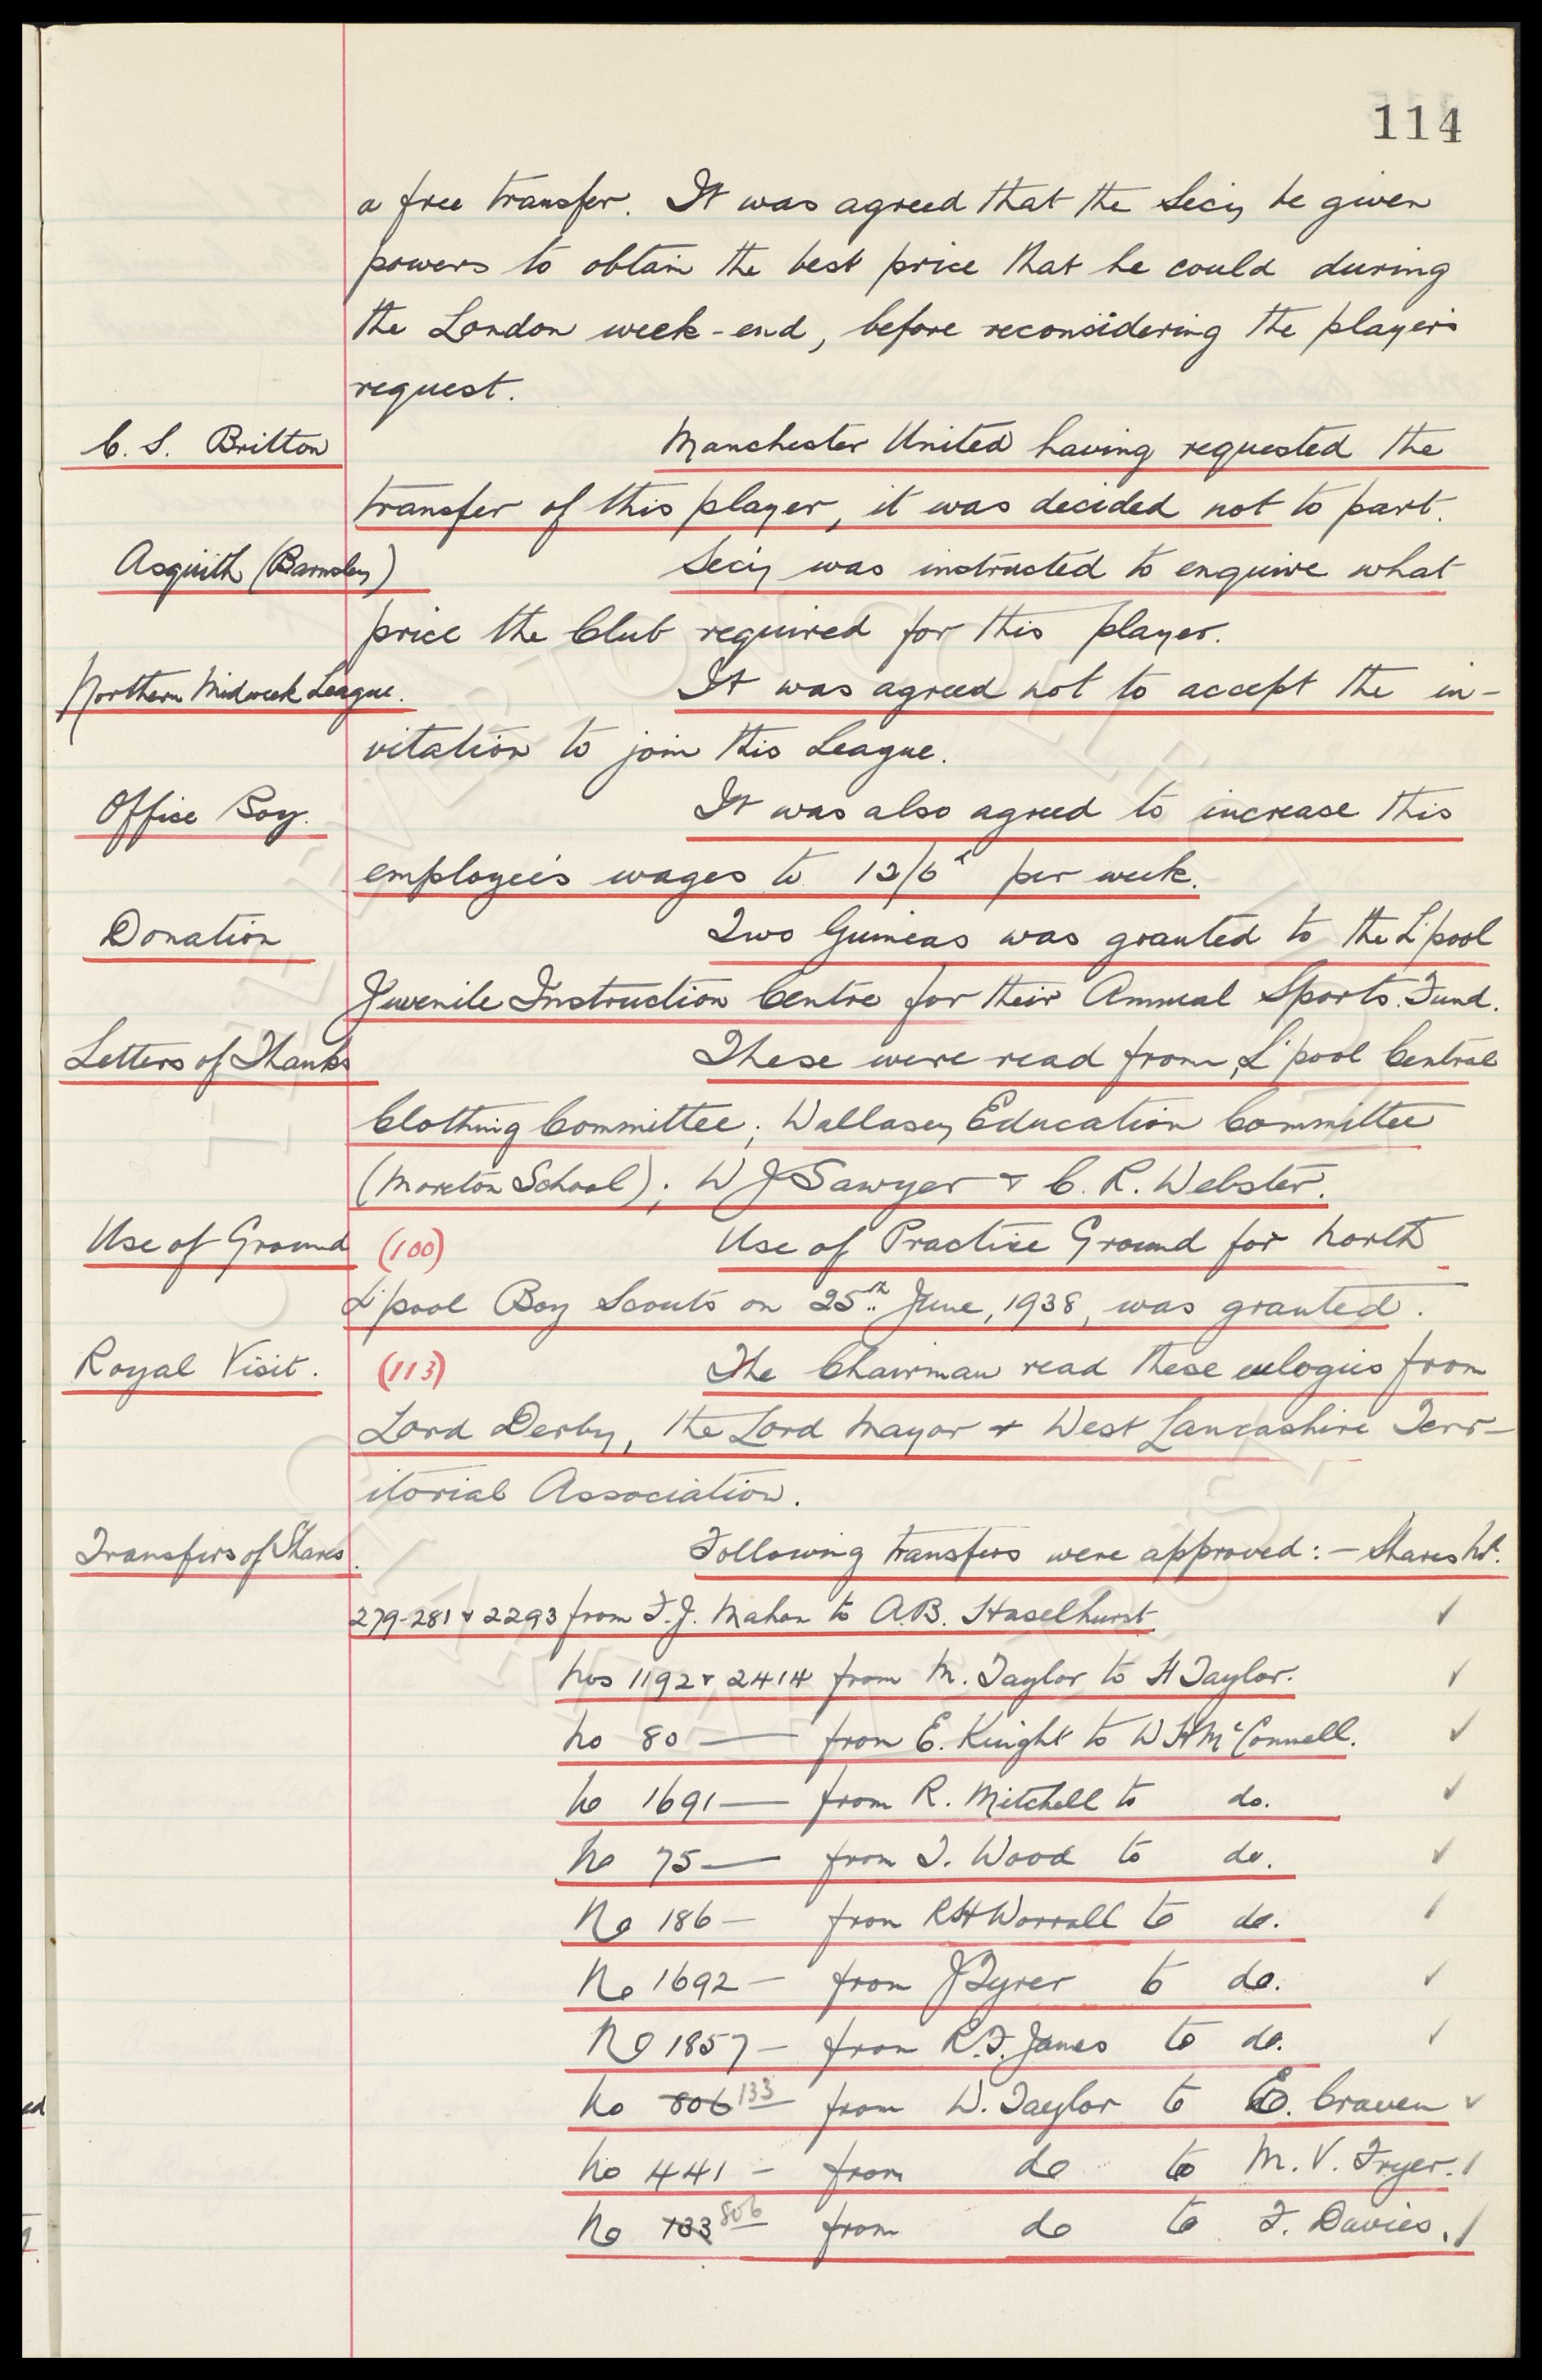 114
a free transfer. It was agreed that the Secy be given
powers to obtain the best price that he could during
the London week-end, before reconsidering the player's
request.
C. S. Britton Manchester United having requested the
transfer of this player, it was decided not to part.
Asquith (Barnsley) Secy was instructed to enquire what
price the Club required for this player.
Northern Midweek League. It was agreed not to accept the in-
vitation to join this League.
Office Boy. It was also agreed to increase this
employee's wages to 12/6d per week.
Donation Two Guineas was granted to the L'pool
Juvenile Instruction Centre for their Annual Sports Fund.
Letters of Thanks These were read from, L'pool Central
Clothing Committee; Wallasey Education Committee
(Moreton School); W J Sawyer & C. R. Webster.
Use of Ground (100) Use of Practice Ground for North
L'pool Boy Scouts on 25th June, 1938, was granted.
Royal Visit. (113) The Chairman read these eulogies from
Lord Derby, the Lord Mayor & West Lancashire Terr-
itorial Association.
Transfers of Shares. Following transfers were approved:- Shares No.
279-281 & 2293 from T.J. Mahon to A.B. Haselhurst ✓
Nos 1192 & 2414 from M. Taylor to H Taylor. ✓
No 80 — from E. Knight to W H McConnell. ✓
No 1691 — from R. Mitchell to do. ✓
No 75 — from T. Wood to do. ✓
No 186 — from R H Worrall to do. ✓
No 1692 — from J Tyrer to do. ✓
No 1857 — from R.T. James to do. ✓
No 806 133 from W. Taylor to E. Craven ✓
No 441 — from do to M. V. Fryer. ✓
No 133 806 from do to F. Davies. ✓